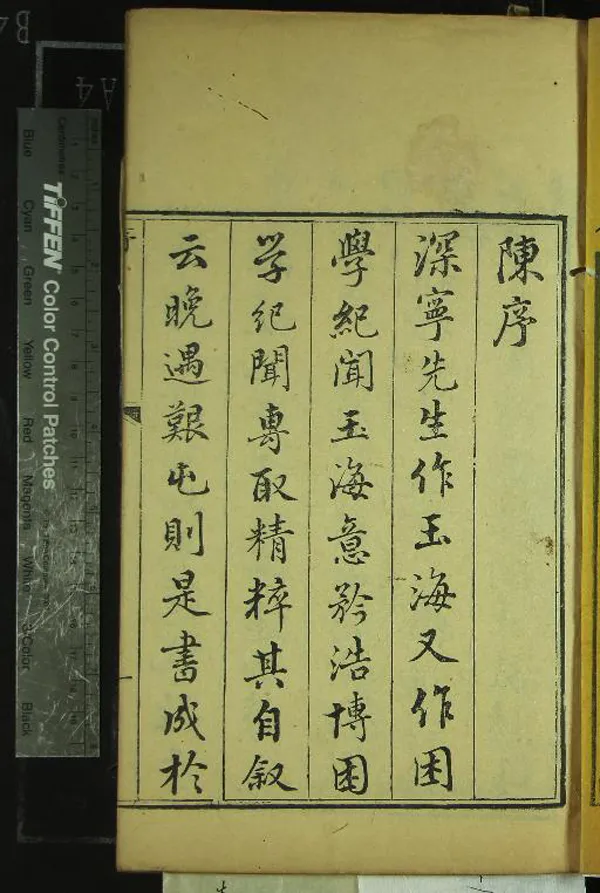 陳序
深寧先生作玉海又作困
學紀聞玉海意矜浩博困
学紀聞專取精粹其自叙
云晚遇艱屯則是書成於
TIFFEN Color Control Patches
Blue
Cyan
Green
Yellow
Red
Magenta
White
3/Color
Black
Centimetres
A4